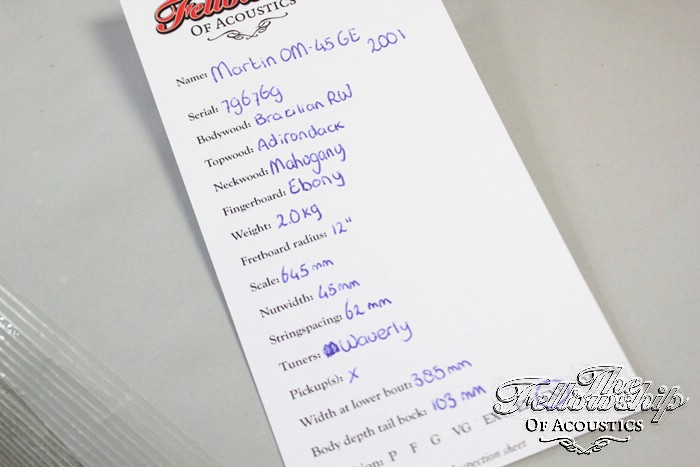 Fellowship
OF ACOUSTICS
Name: Martin OM-45 GE
2001
Serial: 796769
Bodywood: Brazilian RW
Topwood: Adirondack
Neckwood: Mahogany
Fingerboard: Ebony
Weight: 2.0 kg
Fretboard radius: 12"
Scale: 645 mm
Nutwidth: 45mm
Stringspacing: 62 mm
Tuners: Waverly
Pickup(s): X
Width at lower bout: 385 mm
Body depth tail bock: 103 mm
P F G VG EX
The
Fellowship
OF ACOUSTICS